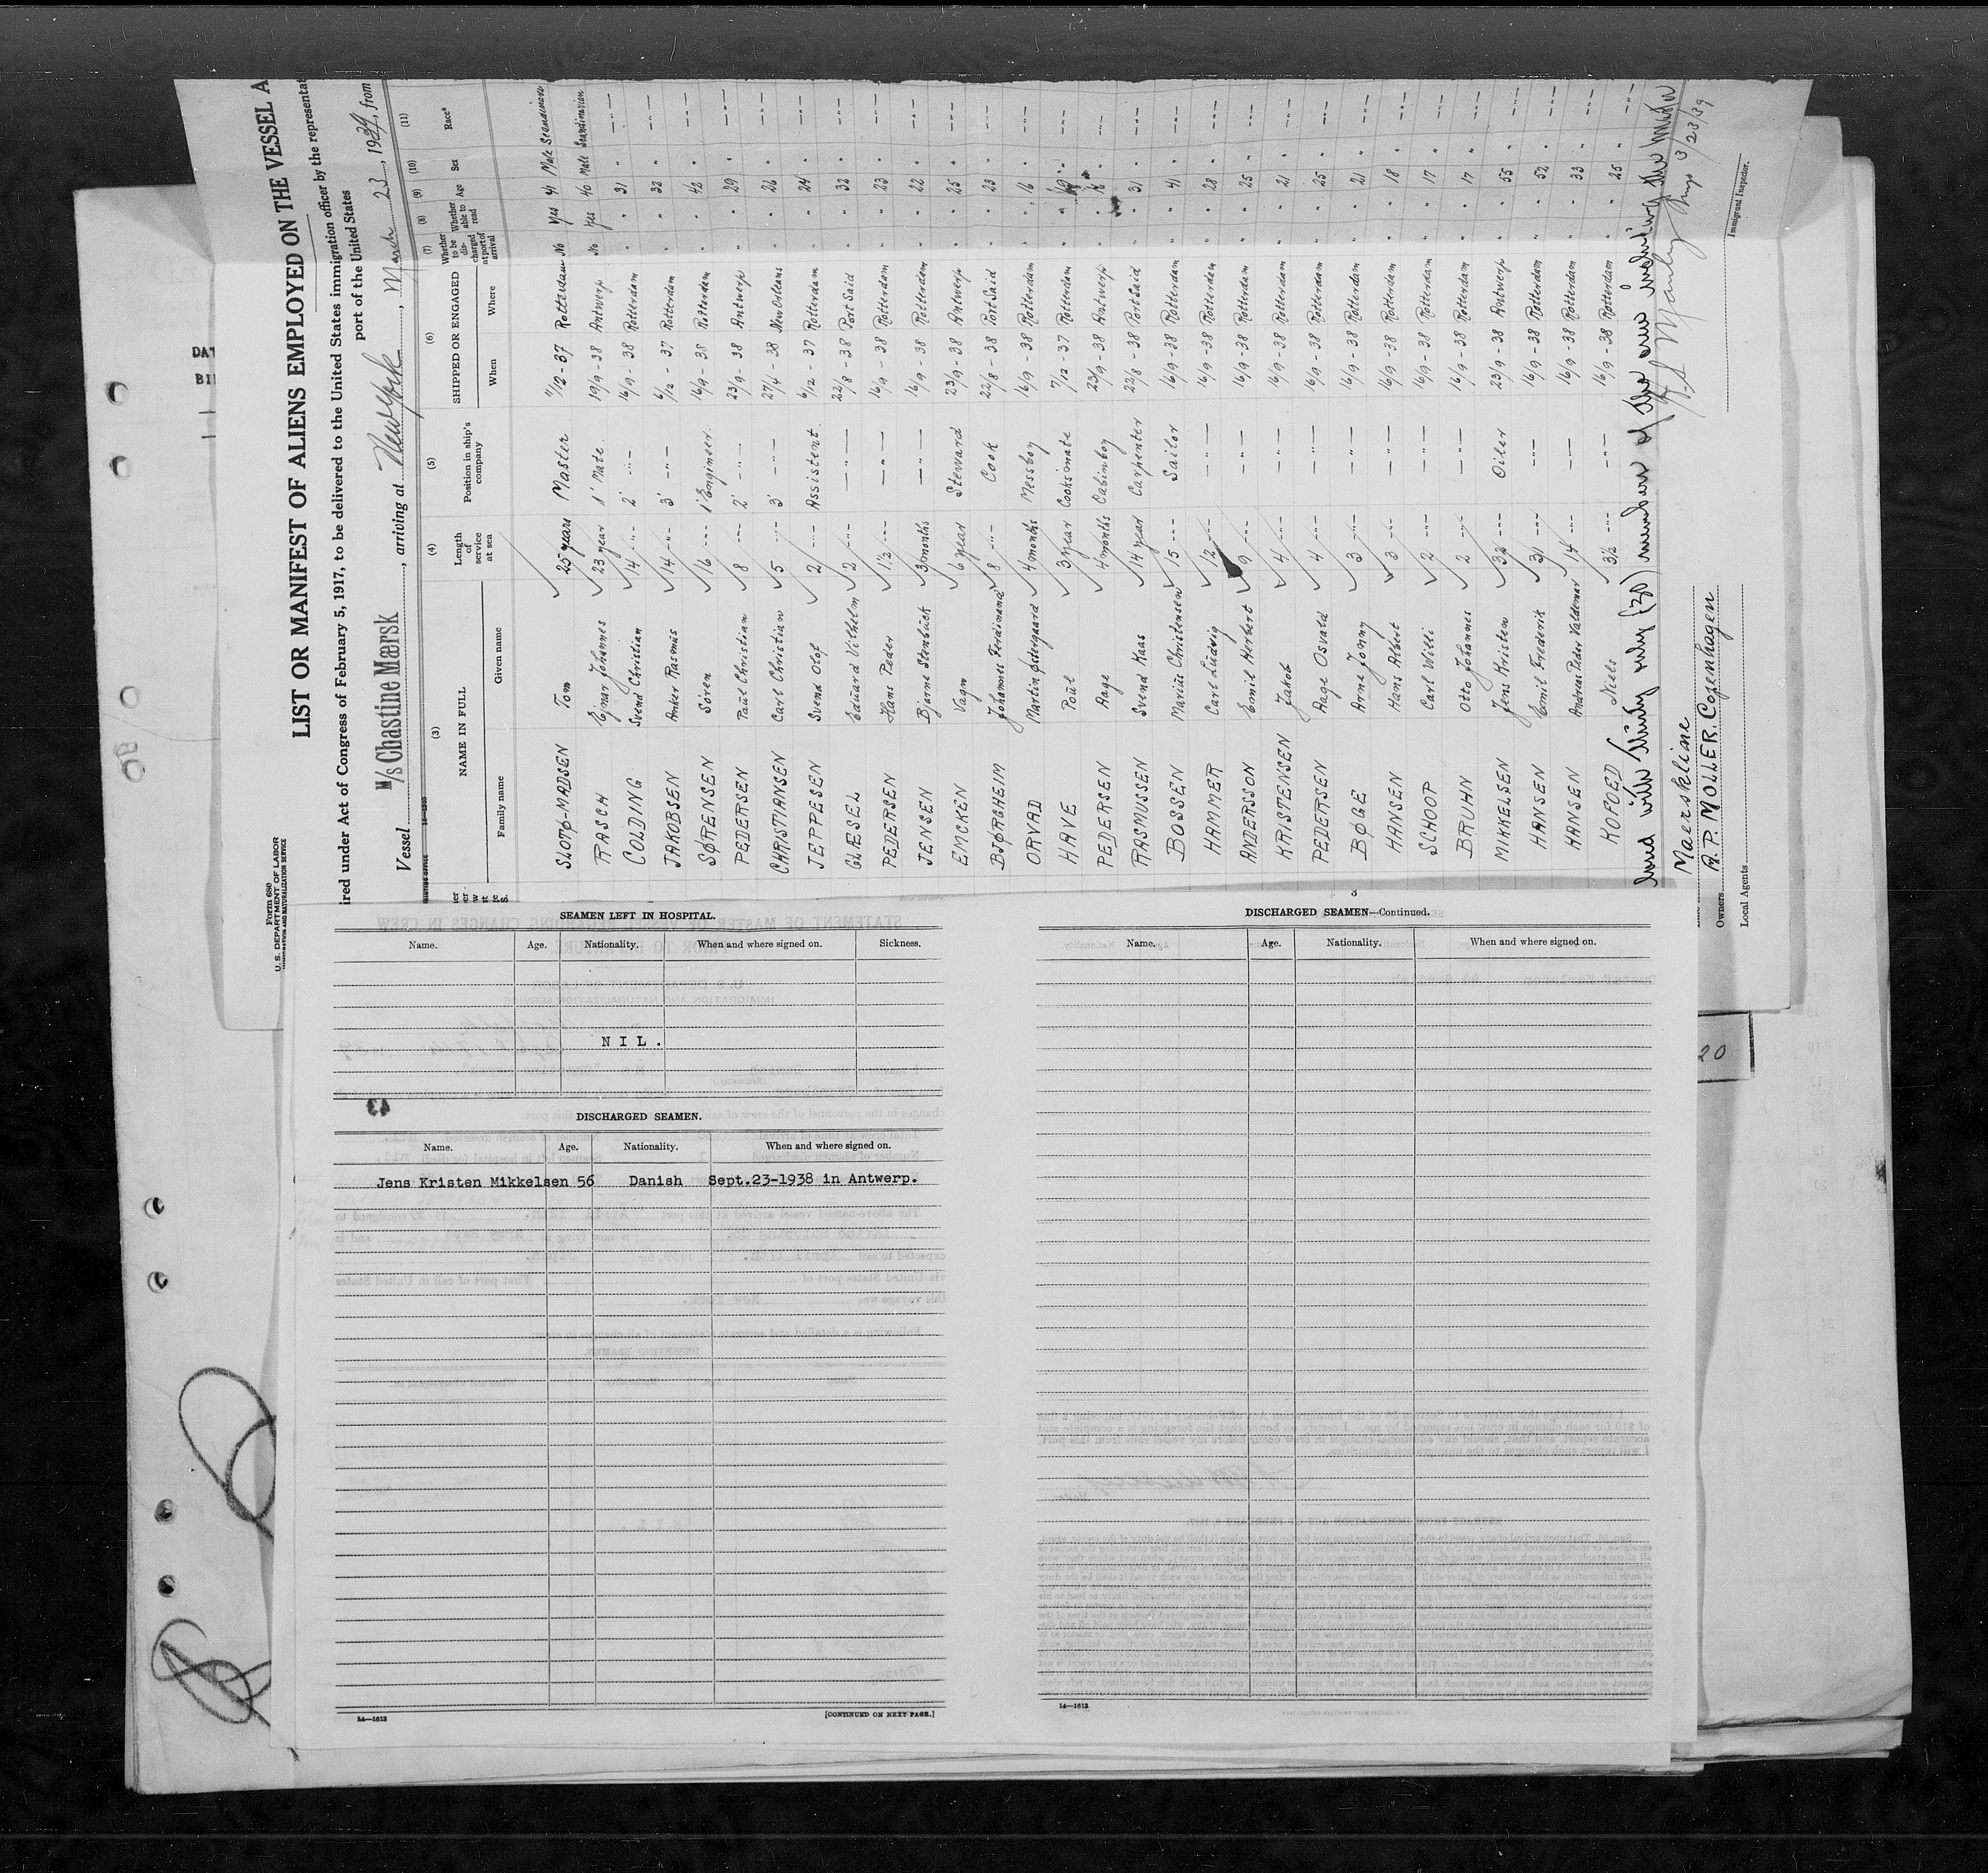 Form 680
U. S. DEPARTMENT OF LABOR
IMMIGRATION AND NATURALIZATION SERVICE
LIST OR MANIFEST OF ALIENS EMPLOYED ON THE VESSEL A
ired under Act of Congress of February 5, 1917, to be delivered to the United States immigration officer by the representat
port of the United States
Vessel M/S Chastine Mærsk, arriving at New York, March 23, 1939, from
(3) (4) (5) (6) (7) (8) (9) (10) (11)
NAME IN FULL Length of service at sea Position in ship's company SHIPPED OR ENGAGED Whether to be discharged at port of arrival Whether able to read Age Sex Race*
Family name Given name When Where
SLOTØ-MADSEN Tom 25 years Master 1/12 - 37 Rotterdam No Yes 41 Male Scandinavian
RASCH Ejnar Johannes 23 year 1' Mate 19/9 - 38 Antwerp No Yes 40 Male Scandinavian
COLDING Svend Christian 14 -"- 2' -"- 16/9 - 38 Rotterdam " " 31 " -"-
JAKOBSEN Anker Rasmus 14 -"- 3' -"- 6/12 - 37 Rotterdam " " 32 " -"-
SØRENSEN Søren 16 -"- 1' Engineer. 16/9 - 38 Rotterdam " " 42 " -"-
PEDERSEN Paul Christian 8 -"- 2' -"- 23/9 - 38 Antwerp " " 29 " -"-
CHRISTIANSEN Carl Christian 5 -"- 3' -"- 27/4 - 38 New Orleans " " 26 " -"-
JEPPESEN Svend Olof 2 -"- Assistent. 6/12 - 37 Rotterdam " " 24 " -"-
GLÆSEL Eduard Vilhelm 2 -"- -"- 22/8 - 38 Port Said " " 32 " -"-
PEDERSEN Hans Peder 1½ -"- -"- 16/9 - 38 Rotterdam " " 23 " -"-
JENSEN Bjarne Stenbück 3 months -"- 16/9 - 38 Rotterdam " " 22 " -"-
EMCKEN Vagn 6 year Steward 23/9 - 38 Antwerp " " 25 " -"-
BJØRGHEIM Johannes Ferdinand 8 -"- Cook 22/8 - 38 Port Said " " 23 " -"-
ORVAD Martin Østergaard 4 months Messboy 16/9 - 38 Rotterdam " " 16 " -"-
HAVE Poul 3 year Cooksmate 7/12 - 37 Rotterdam " " " -"-
PEDERSEN Aage 4 months Cabinboy 23/9 - 38 Antwerp " " 16 " -"-
RASMUSSEN Svend Kaas 14 year Carpenter 22/8 - 38 Port Said " " 31 " -"-
BOSSEN Marius Christensen 15 -"- Sailor 16/9 - 38 Rotterdam " " 41 " -"-
HAMMER Carl Ludvig 12 -"- -"- 16/9 - 38 Rotterdam " " 28 " -"-
ANDERSSON Emil Herbert 9 -"- -"- 16/9 - 38 Rotterdam " " 25 " -"-
KRISTENSEN Jakob 4 -"- -"- 16/9 - 38 Rotterdam " " 21 " -"-
PEDERSEN Aage Osvald 4 -"- -"- 16/9 - 38 Rotterdam " " 25 " -"-
BØGE Arne Jonny 3 -"- -"- 16/9 - 38 Rotterdam " " 21 " -"-
HANSEN Hans Albert 3 -"- -"- 16/9 - 38 Rotterdam " " 18 " -"-
SCHOOP Carl Willi 2 -"- -"- 16/9 - 38 Rotterdam " " 17 " -"-
BRUHN Otto Johannes 2 -"- -"- 16/9 - 38 Rotterdam " " 17 " -"-
MIKKELSEN Jens Kristen 32 -"- Oiler 23/9 - 38 Antwerp " " 55 " -"-
HANSEN Emil Frederik 31 -"- -"- 16/9 - 38 Rotterdam " " 52 " -"-
HANSEN Andreas Peder Valdemar 14 -"- -"- 16/9 - 38 Rotterdam " " 33 " -"-
KOFOED Niels 3½ -"- -"- 16/9 - 38 Rotterdam " " 25 " -"-
thirty only (30) members of the crew including the master
3/23/39
Maerskline
Owners A. P. MOLLER. Copenhagen
Local Agents
Immigrant Inspector.
SEAMEN LEFT IN HOSPITAL.
Name. Age. Nationality. When and where signed on. Sickness.
N I L .
43
DISCHARGED SEAMEN.
Name. Age. Nationality. When and where signed on.
Jens Kristen Mikkelsen 56 Danish Sept.23-1938 in Antwerp.
14—1613
[CONTINUED ON NEXT PAGE.]
3
DISCHARGED SEAMEN—Continued.
Name. Age. Nationality. When and where signed on.
14—1613
20